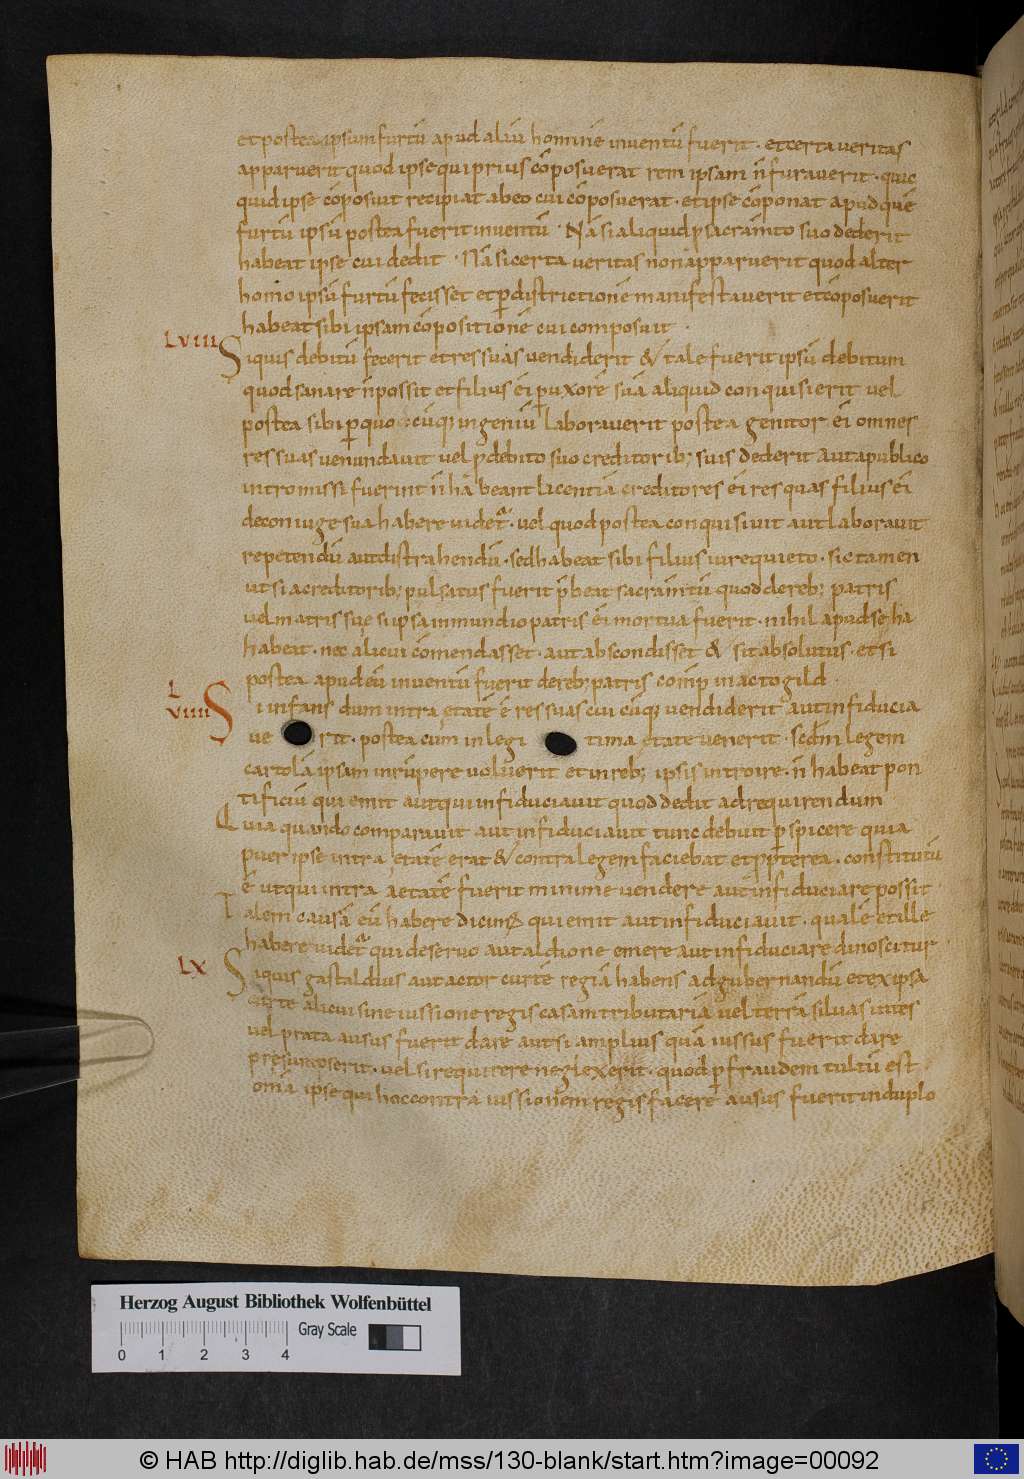 et postea ipsum furtū apud aliū hominē inventū fuerit · et certa veritas
apparuerit quod ipse qui prius cōposuerat rem ipsam n̄ furaverit · quic
quid ipse cōposuit recipiat ab eo cui cōposuerat · et ipse cōponat apud quē
furtū ipsū postea fuerit inventū · Nā si aliquid p sacram̄to suo dederit
habeat ipse cui dedit · Nā si certa veritas non apparuerit quod alter
homo ipsū furtū fecisset et p districtionē manifestaverit et cōposuerit
habeat sibi ipsam cōpositionē cui composuit ·
LVIII Siquis debitū fecerit et res suas vendiderit & tale fuerit ipsū debitum
quod sanare n̄ possit et filius ei p uxorē suā aliquid conquisierit vel
postea sibi p quo cūq; ingeniū laboraverit postea genitor ei omnes
res suas venundavit vel p debito suo creditorib; suis dederit aut a publico
intromissi fuerint n̄ habeant licentiā creditores ei res quas filius ei
de coniuge sua habere videt̄ · vel quod postea conquisivit aut laboravit
repetendū aut distrahendū · sed habeat sibi filius iure quieto · sic tamen
ut si a creditorib; pulsatus fuerit p̄beat sacram̄tū quod de reb; patris
vel matris sue si ipsa in mundio patris ei mortua fuerit · nihil apud se ha
habeat · nec alicui cōmendasset · aut abscondisset & sit absolutus · et si
postea apud eū inventū fuerit de reb; patris comp̄ in actogild ·
L
VIIII Si infans dum intra etatē ē res suas cui cūq; vendiderit aut infiducia
ve rit · postea cum in legi tima etate venerit · scd̄m legem
cartolā ipsam inrūpere voluerit et in reb; ipsis introire · n̄ habeat pon
tificiū qui emit aut qui infiduciavit quod dedit ad requirendum
Quia quando comparavit aut infiduciavit tunc debuit p̄spicere quia
puer ipse intra etatē erat & contra legem faciebat et ppterea · constitutū
ē ut qui intra aetatē fuerit minime vendere aut infiduciare possit ·
Talem causā eū habere dicim; qui emit aut infiduciavit · qualē et ille
habere videt̄ qui de servo aut aldione emere aut infiduciare dinoscitur ·
LX Siquis gastaldius aut actor curtē regiā habens ad gubernandū et ex ipsa
curte alicui sine iussione regis casam tributariā vel terrā silvas vites
vel prata ausus fuerit dare aut si amplius quā iussus fuerit dare
presumpserit · vel si requirere neglexerit · quod p fraudem tultū est
om̄a ipse qui hoc contra iussionem regis facere ausus fuerit in duplo
Herzog August Bibliothek Wolfenbüttel
Gray Scale
0 1 2 3 4
© HAB http://diglib.hab.de/mss/130-blank/start.htm?image=00092